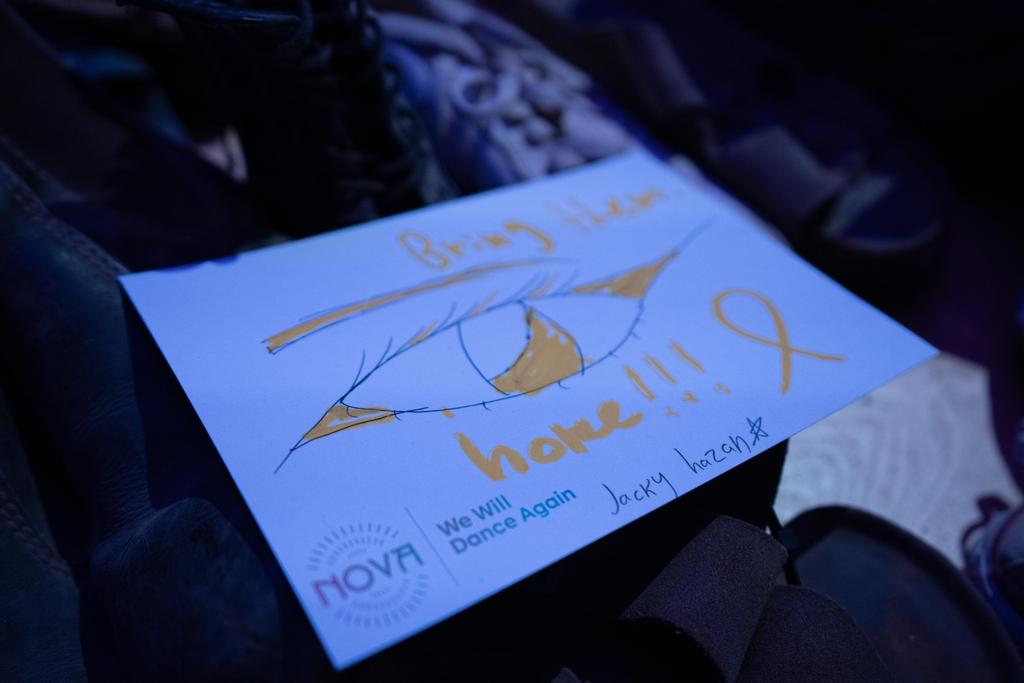 Bring them
home!!!
Jacky hazan
NOVA
We Will
Dance Again